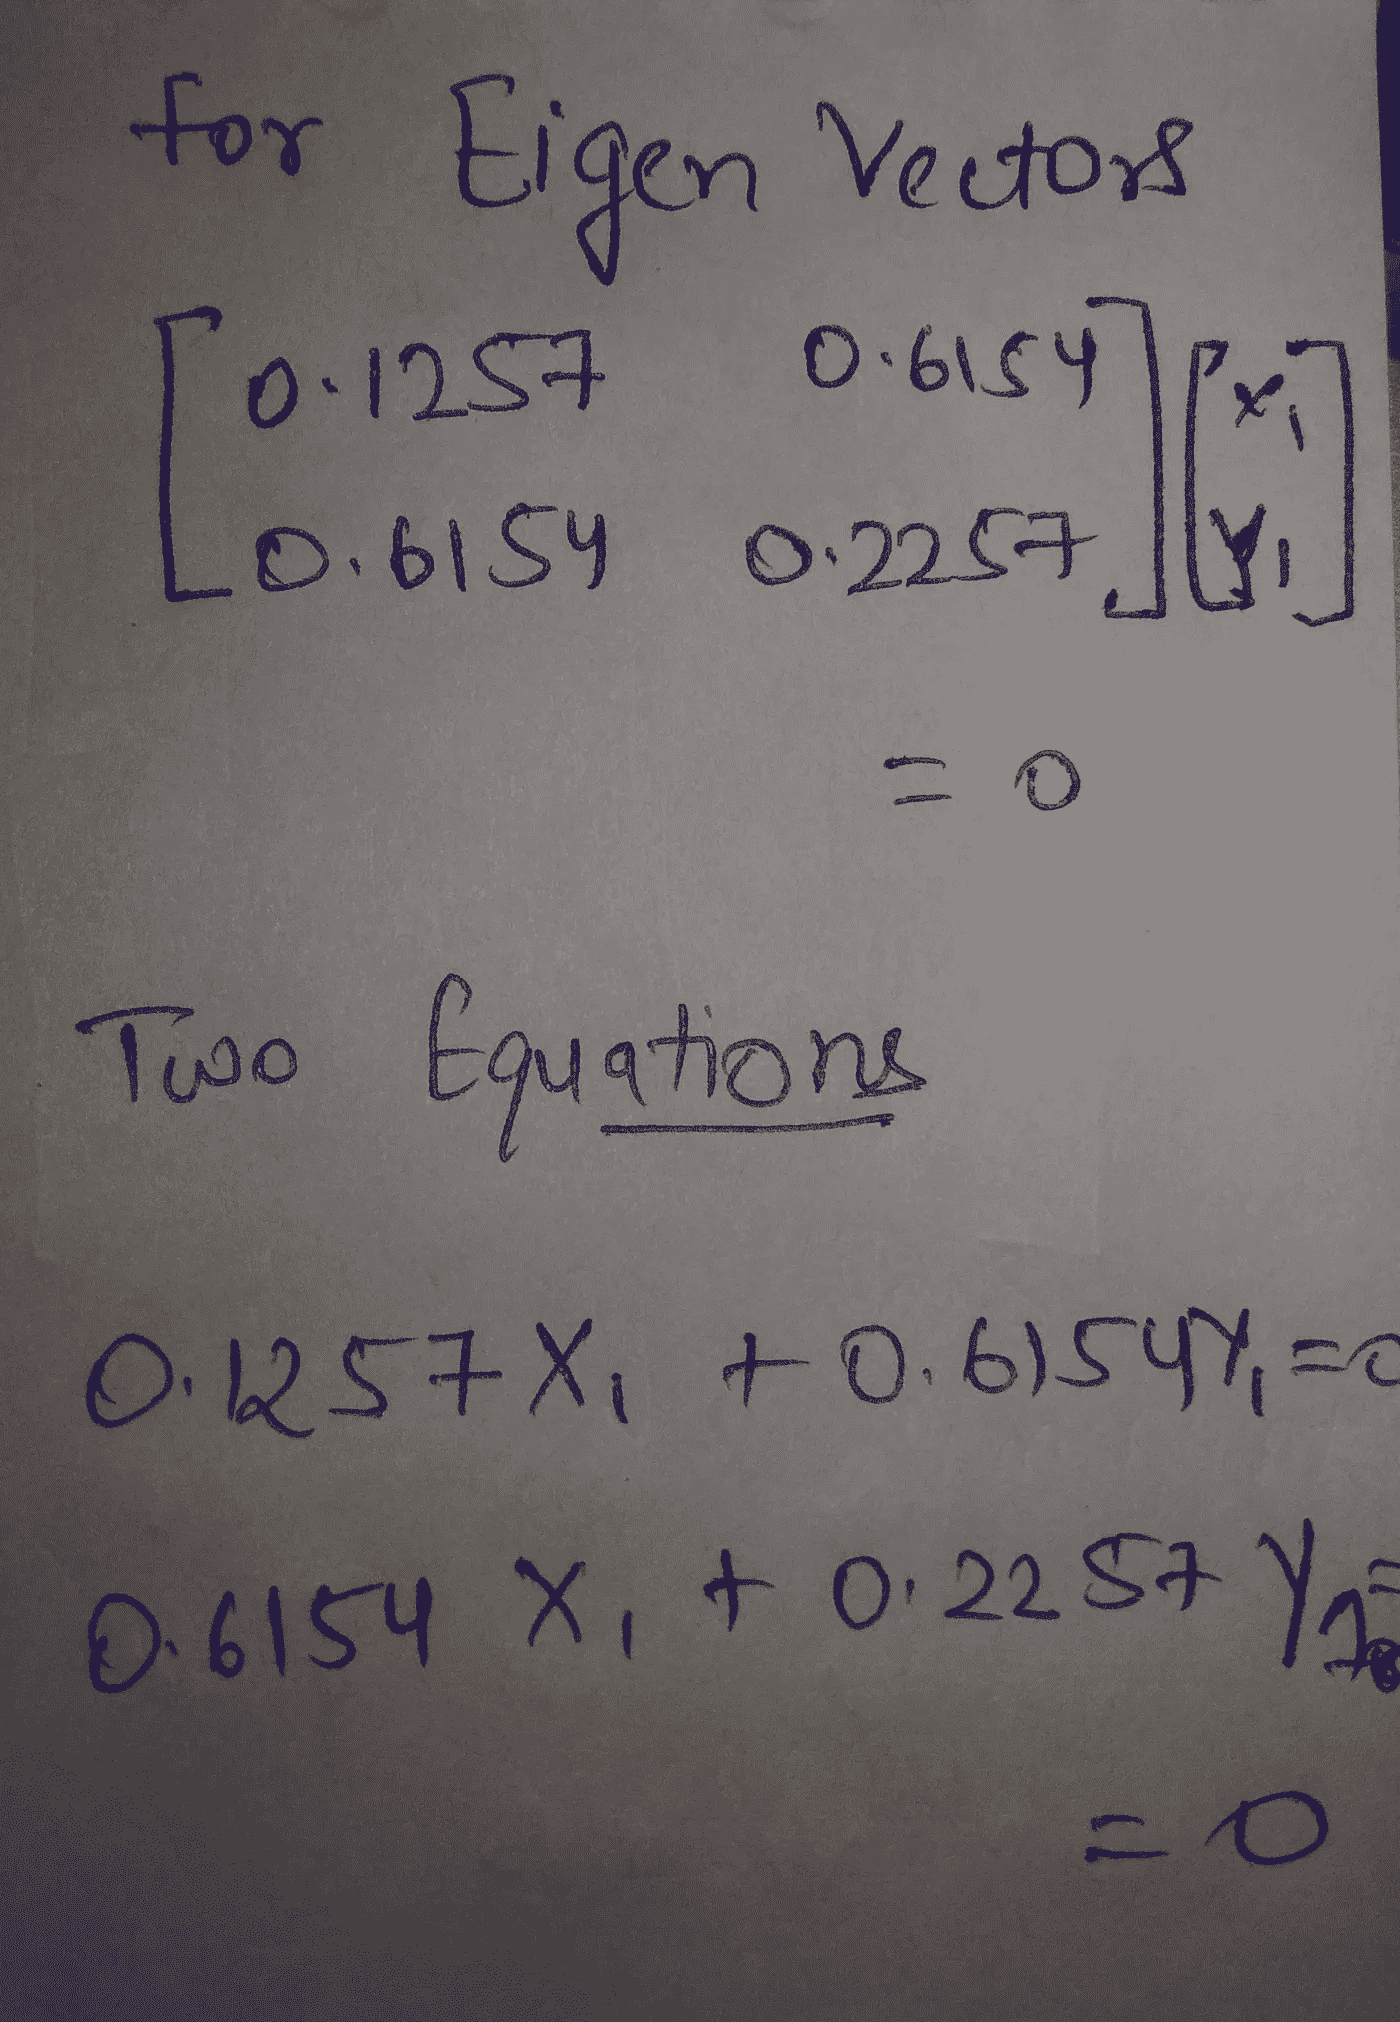 for Eigen Vectors
[0.1257 0.6154] [x1]
[0.6154 0.2257] [y1]
= 0
Two Equations
0.1257 X1 + 0.6154Y1 =0
0.6154 X1 + 0.2257 Y1 =
= 0